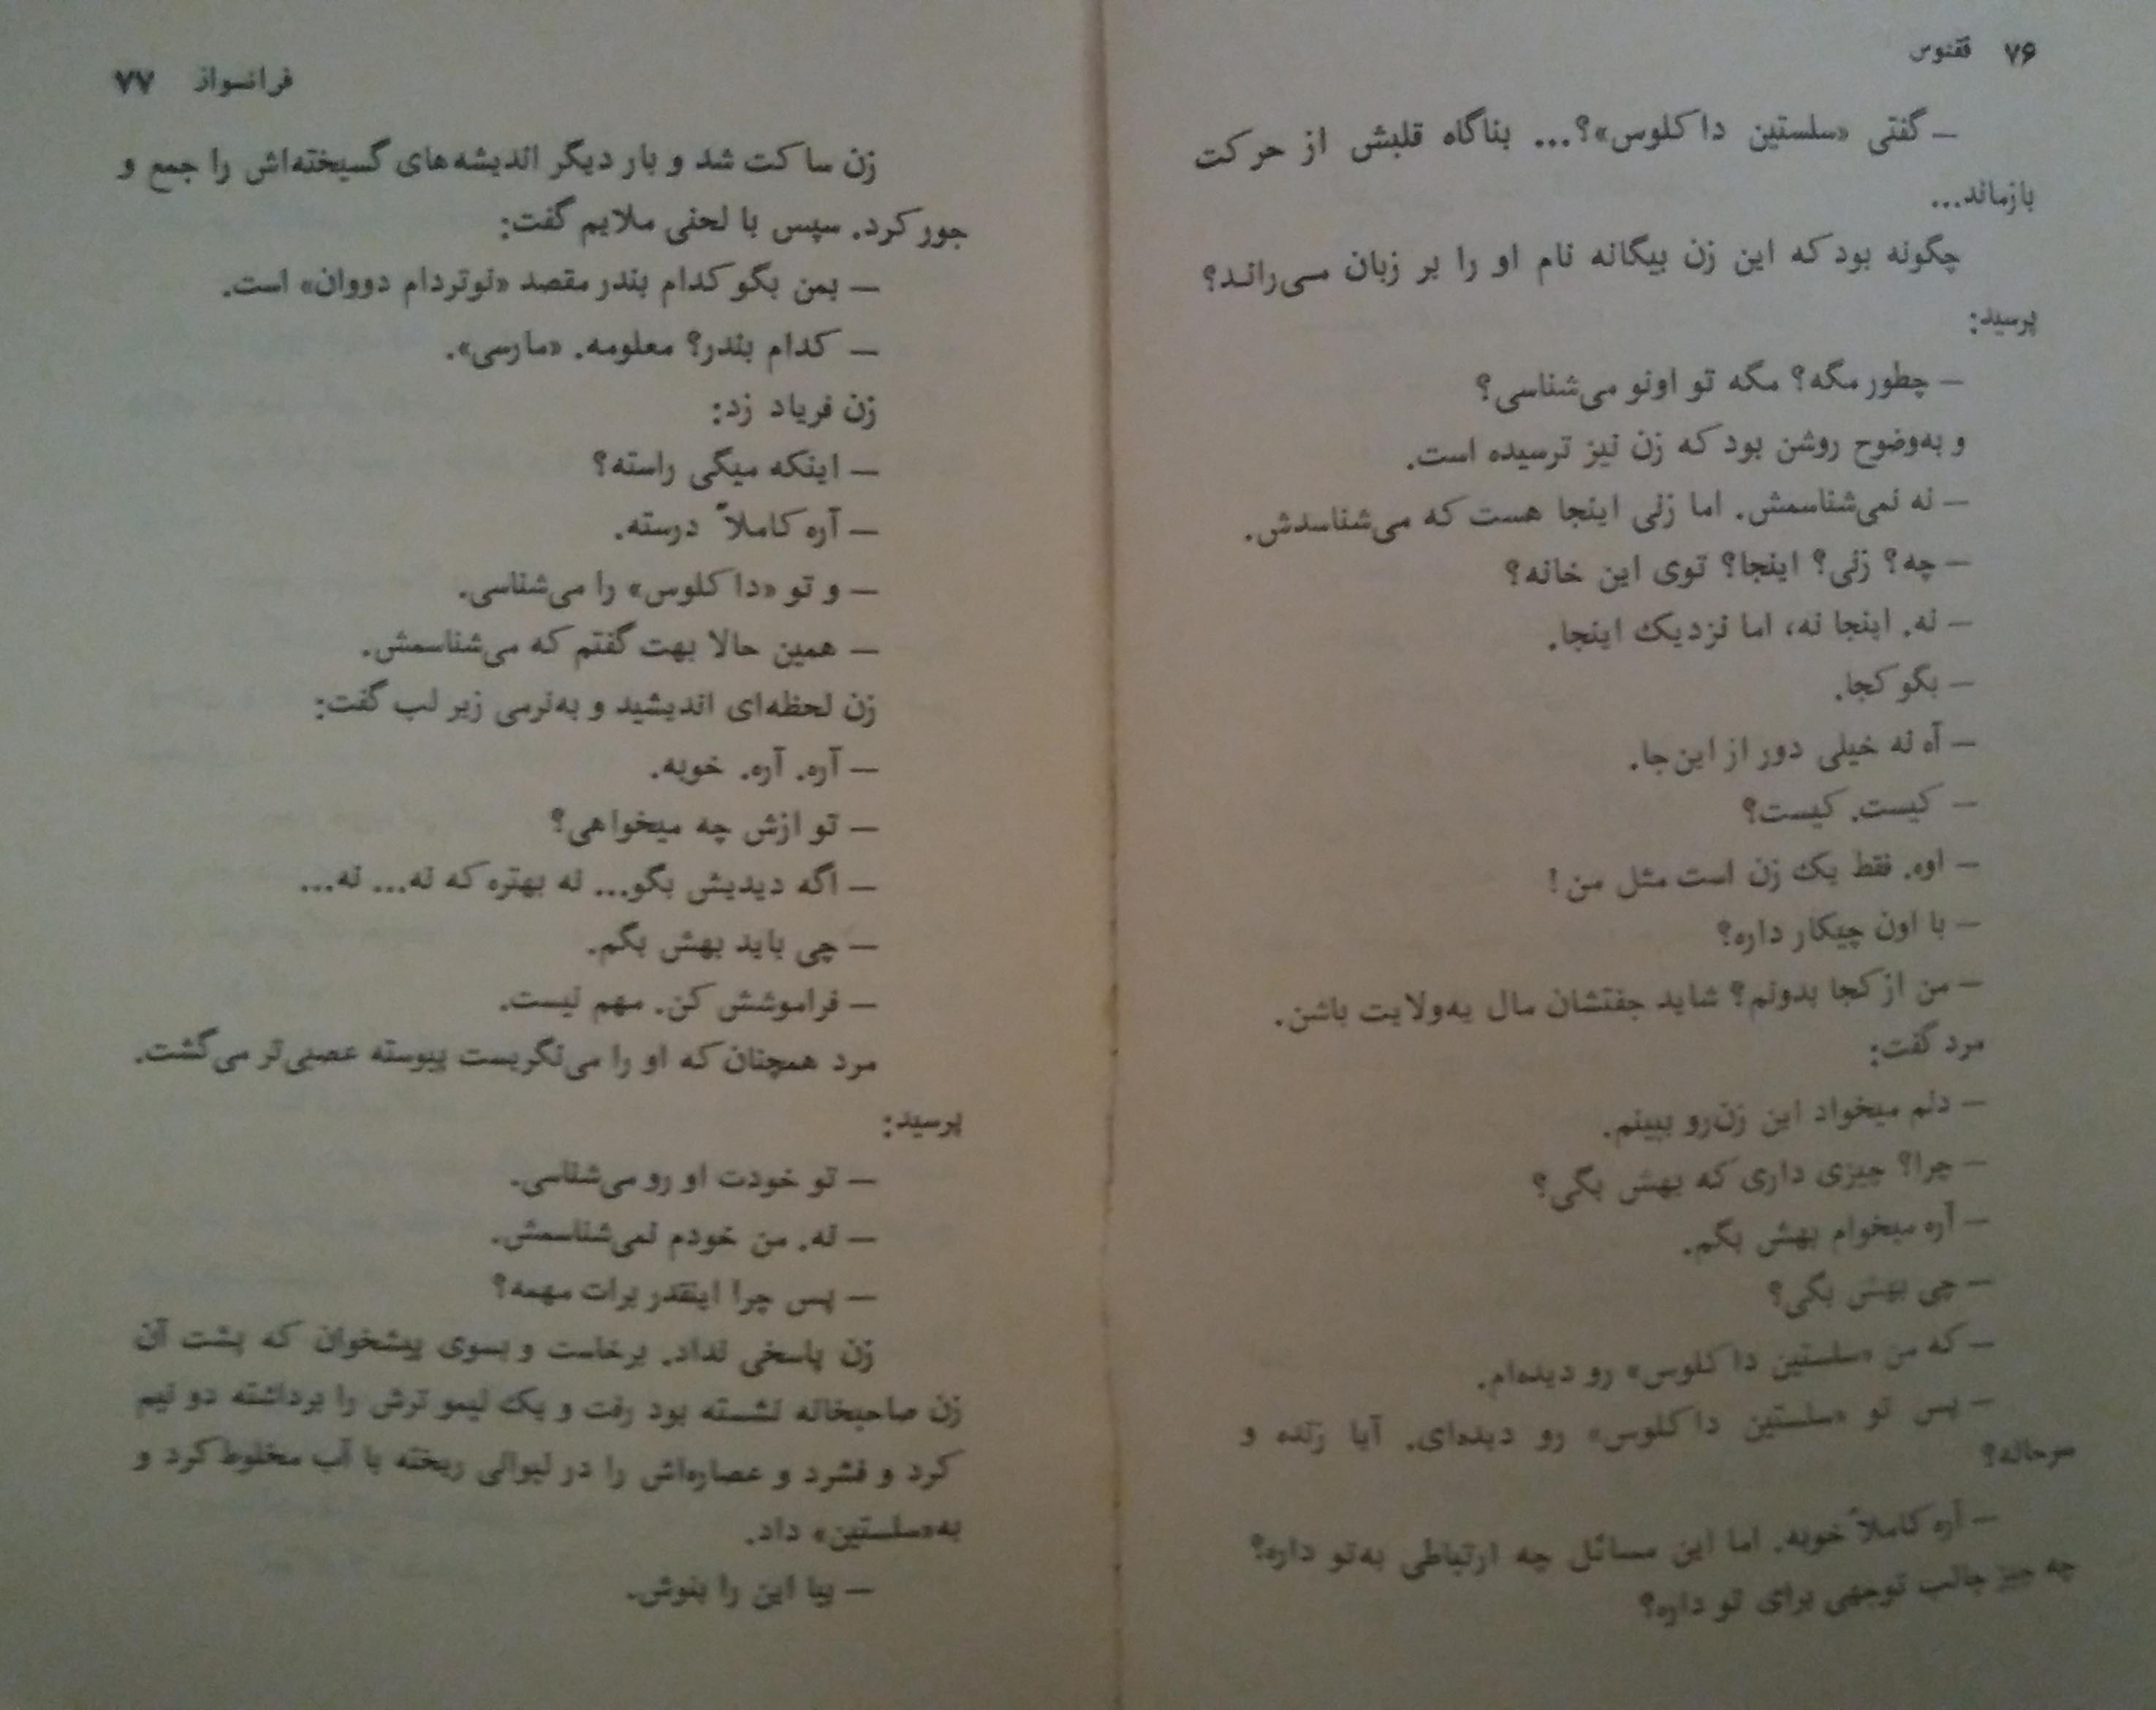 ۷۶ ققنوس
— گفتی «سلستین داکلوس»؟... بناگاه قلبش از حرکت
بازماند...
چگونه بود که این زن بیگانه نام او را بر زبان می‌راند؟
پرسید:
— چطور مگه؟ مگه تو اونو می‌شناسی؟
و به‌وضوح روشن بود که زن نیز ترسیده است.
— نه نمی‌شناسمش. اما زنی اینجا هست که می‌شناسدش.
— چه؟ زنی؟ اینجا؟ توی این خانه؟
— نه. اینجا نه، اما نزدیک اینجا.
— بگو کجا.
— آه نه خیلی دور از این‌جا.
— کیست. کیست؟
— اوه. فقط یک زن است مثل من!
— با اون چیکار داره؟
— من از کجا بدونم؟ شاید جفتشان مال یه‌ولایت باشن.
مرد گفت:
— دلم میخواد این زن‌رو ببینم.
— چرا؟ چیزی داری که بهش بگی؟
— آره میخوام بهش بگم.
— چی بهش بگی؟
— که من «سلستین داکلوس» رو دیده‌ام.
— پس تو «سلستین داکلوس» رو دیده‌ای. آیا زنده و
سرحاله؟
— آره کاملاً خوبه. اما این مسائل چه ارتباطی به‌تو داره؟
چه چیز جالب توجهی برای تو داره؟
فرانسواز ۷۷
زن ساکت شد و بار دیگر اندیشه‌های گسیخته‌اش را جمع و
جور کرد. سپس با لحنی ملایم گفت:
— بمن بگو کدام بندر مقصد «نوتردام دووان» است.
— کدام بندر؟ معلومه. «مارسی».
زن فریاد زد:
— اینکه میگی راسته؟
— آره کاملاً درسته.
— و تو «داکلوس» را می‌شناسی.
— همین حالا بهت گفتم که می‌شناسمش.
زن لحظه‌ای اندیشید و به‌نرمی زیر لب گفت:
— آره. آره. خوبه.
— تو ازش چه میخواهی؟
— اگه دیدیش بگو... نه بهتره که نه... نه...
— چی باید بهش بگم.
— فراموشش کن. مهم نیست.
مرد همچنان که او را می‌نگریست پیوسته عصبی‌تر می‌گشت.
پرسید:
— تو خودت او رو می‌شناسی.
— نه. من خودم نمی‌شناسمش.
— پس چرا اینقدر برات مهمه؟
زن پاسخی نداد. برخاست و بسوی پیشخوان که پشت آن
زن صاحبخانه نشسته بود رفت و یک لیمو ترش را برداشته دو نیم
کرد و فشرد و عصاره‌اش را در لیوالی ریخته با آب مخلوط کرد و
به«سلستین» داد.
— بیا این را بنوش.